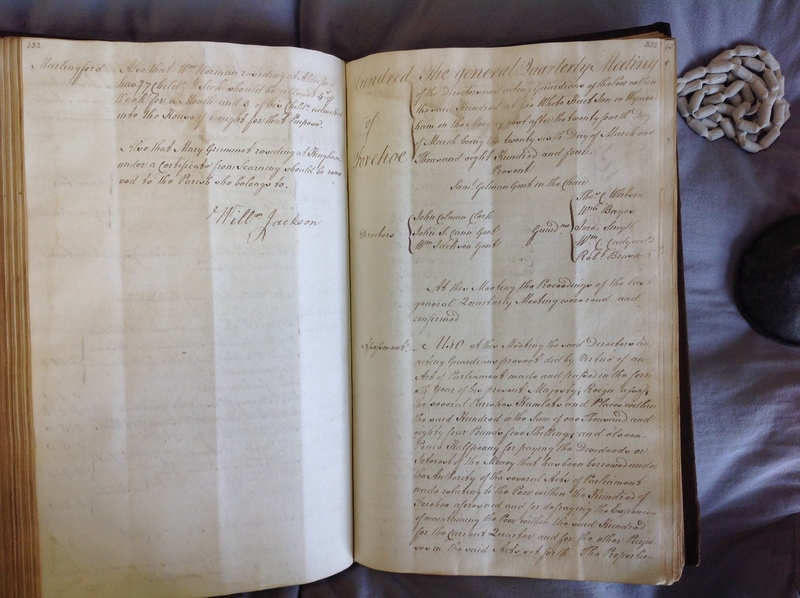 332
Marlingford Also that Wm Norman residing at
has 7 Child
Week for a Month and 3 of his Child
into the House of for that Purpose.
Also that Mary Grummet residing at Hingham
under a Certificate from Scarning should be remo
ved to the Parish she belongs to.
Willm Jackson
333
Hundred of Forehoe
The general Quarterly Meeting
of the Directors and acting Guardians of the Poor within
the said Hundred at the White Hart Inn in Wymond
ham on the day next after the twenty fourth Day
of March being the twenty sixth Day of March one
Thousand eight Hundred and four.
Present
Saml Gilman Gent in the Chair
Directors
John Colman Clerk
John S. Cann Gent
Wm Jackson Gent
Guardns
Thos C Watson
Wm Bayes
Jere. Smyth
Wm C
Robt
At this Meeting the Proceedings of the last
general Quarterly Meeting were read and
confirmed
Assessment
Also at this Meeting the said Directors and
acting Guardians present did by Virtue of an
Act of Parliament made and passed in the
Year of his present Majesty's Reign assess
the several Parishes Hamlets and Places within
the said Hundred in the Sum of one Thousand and
eighty four Pounds five Shillings and eleven
Pence Halfpenny for paying the Dividends or
Interest of the Money that has been borrowed under
the Authority of the several Acts of Parliament
made relating to the Poor within the Hundred of
Forehoe aforesaid and for defraying the Expences
of maintaining the Poor within the said Hundred
for the Current Quarter and for the other Purpo
ses in the said Acts set forth The Proportion